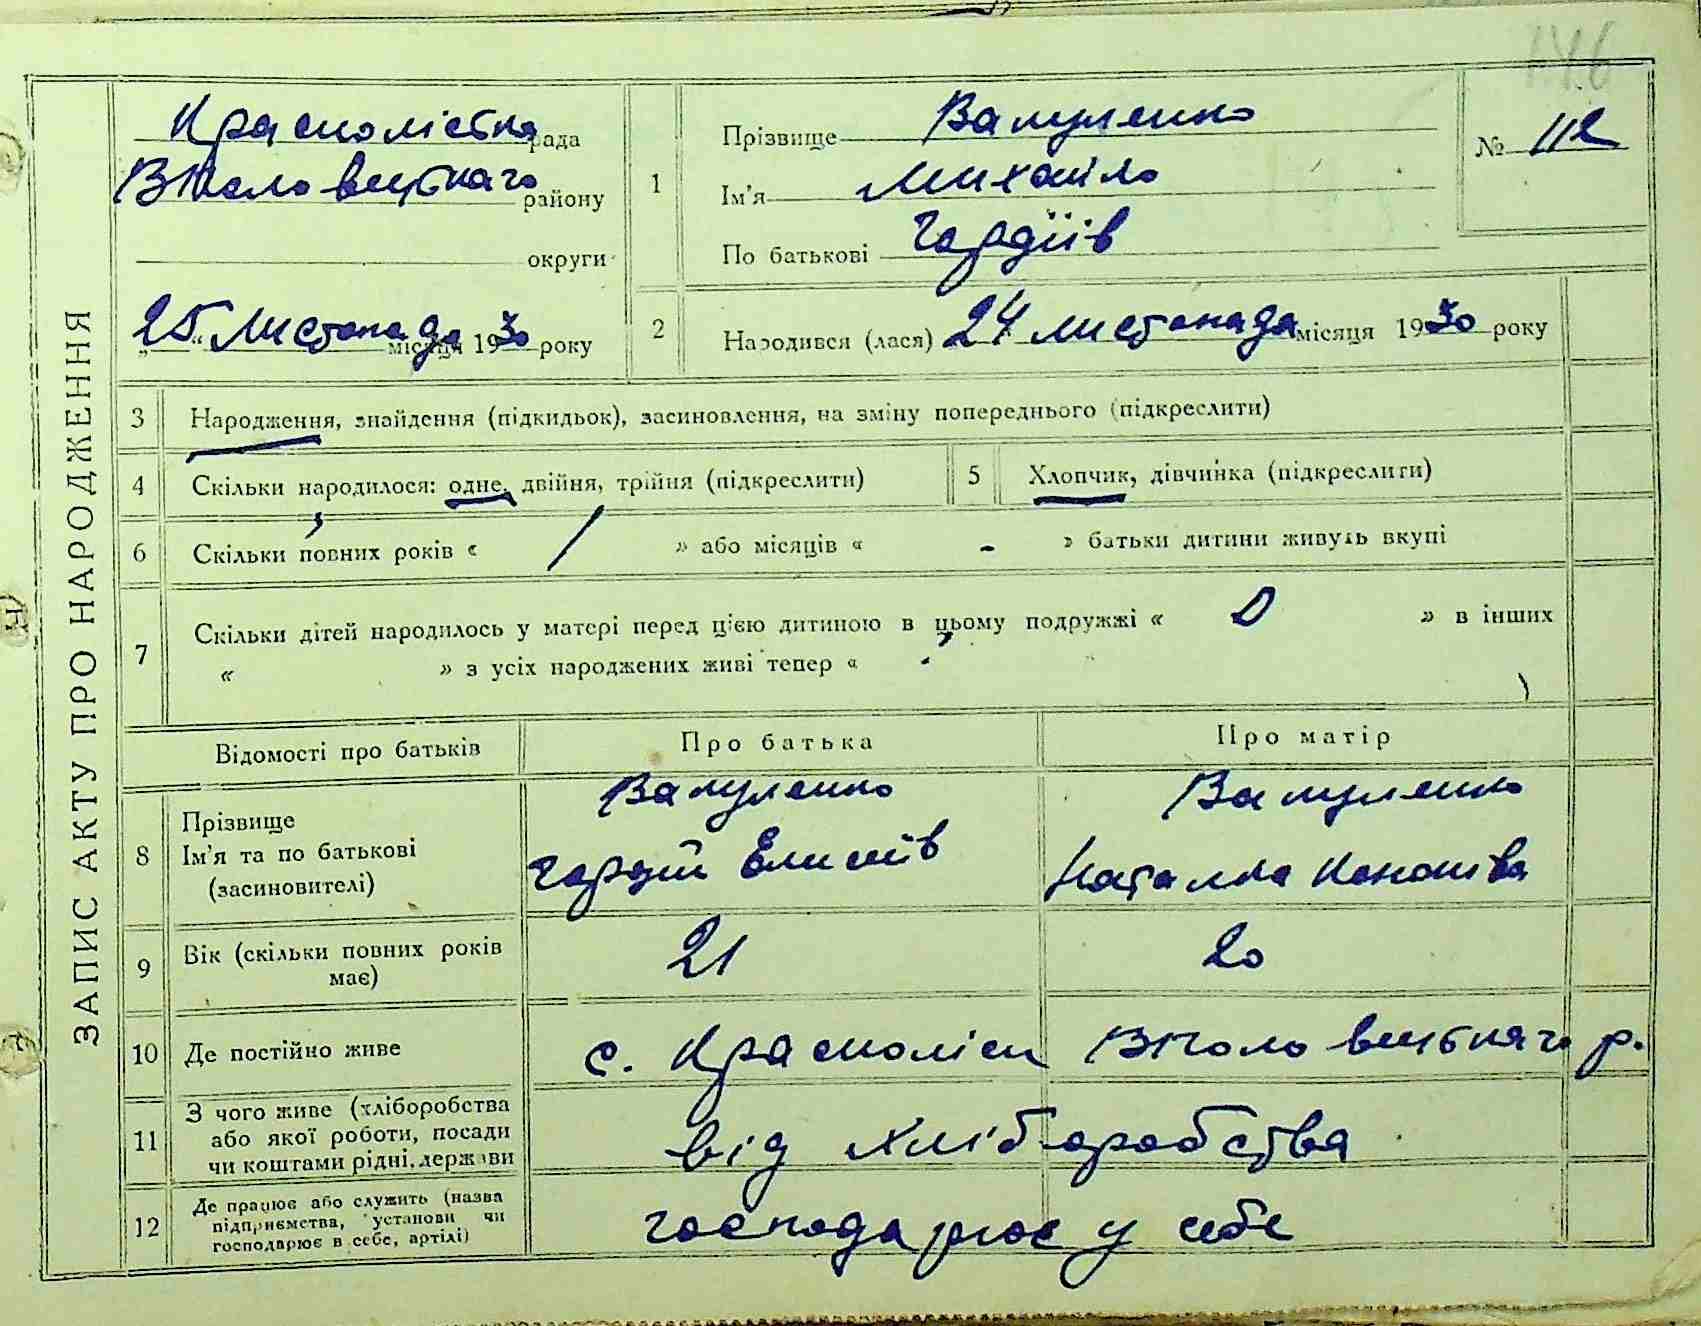 146
ЗАПИС АКТУ ПРО НАРОДЖЕННЯ
Красноліська рада
району
округи
"25" Листопада місяця 1930 року
1 Прізвище Вакуленко
Ім'я Михайло
По батькові Гордіїв
№ 112
2 Народився (лася) 24 листопада місяця 1930 року
3 Народження, знайдення (підкидьок), засиновлення, на зміну попереднього (підкреслити)
4 Скільки народилося: одне, двійня, трійня (підкреслити) 5 Хлопчик, дівчинка (підкреслити)
6 Скільки повних років « / » або місяців « - » батьки дитини живуть вкупі
7 Скільки дітей народилось у матері перед цією дитиною в цьому подружжі « 0 » в інших
« » з усіх народжених живі тепер «
Відомості про батьків Про батька Про матір
8 Прізвище Вакуленко Вакуленко
Ім'я та по батькові Гордій Елисеїв Наталка Кононівна
(засиновителі)
9 Вік (скільки повних років має) 21 20
10 Де постійно живе с. Красноліси р.
11 З чого живе (хліборобства або якої роботи, посади чи коштами рідні, держави від хліборобства
12 Де працює або служить (назва підприємства, установи чи господарює в себе, артілі) господарює у себе